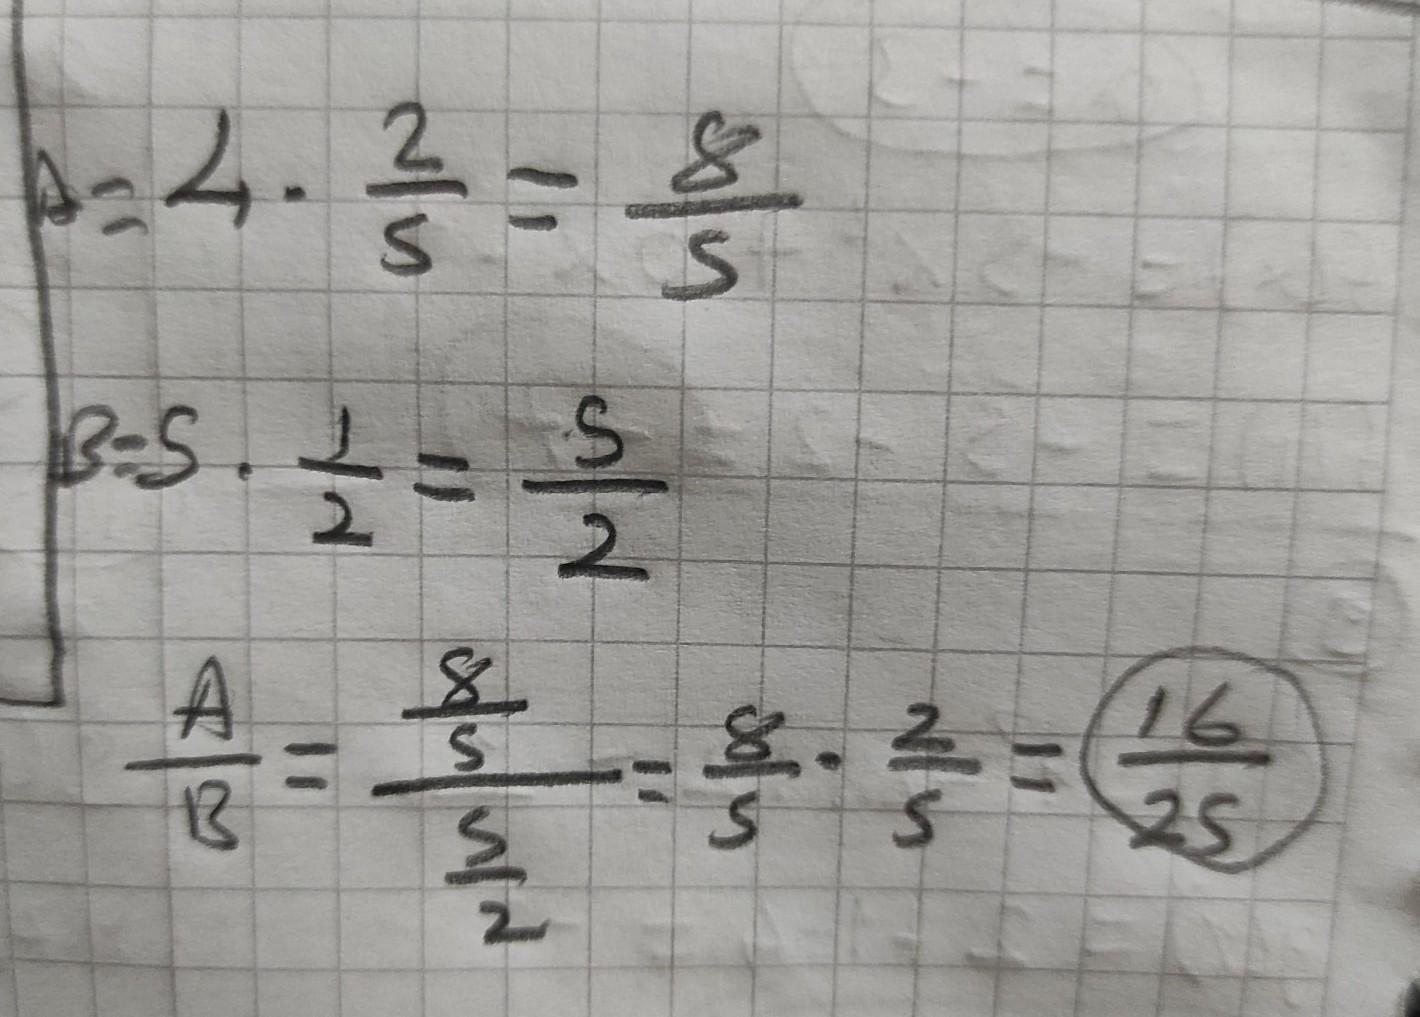 A = 4 · 2/5 = 8/5
B = 5 · 1/2 = 5/2
A/B = (8/5)/(5/2) = 8/5 · 2/5 = 16/25